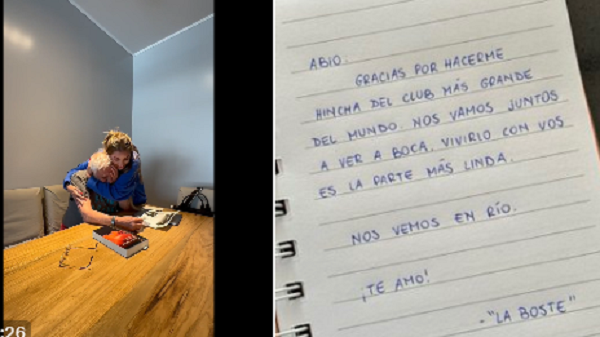 :26
ABIO.
GRACIAS POR HACERME
HINCHA DEL CLUB MÁS GRANDE
DEL MUNDO. NOS VAMOS JUNTOS
A VER A BOCA. VIVIRIO CON VOS
ES LA PARTE MÁS LINDA.
NOS VEMOS EN RÍO.
¡TE AMO!
-"LA BOSTE"